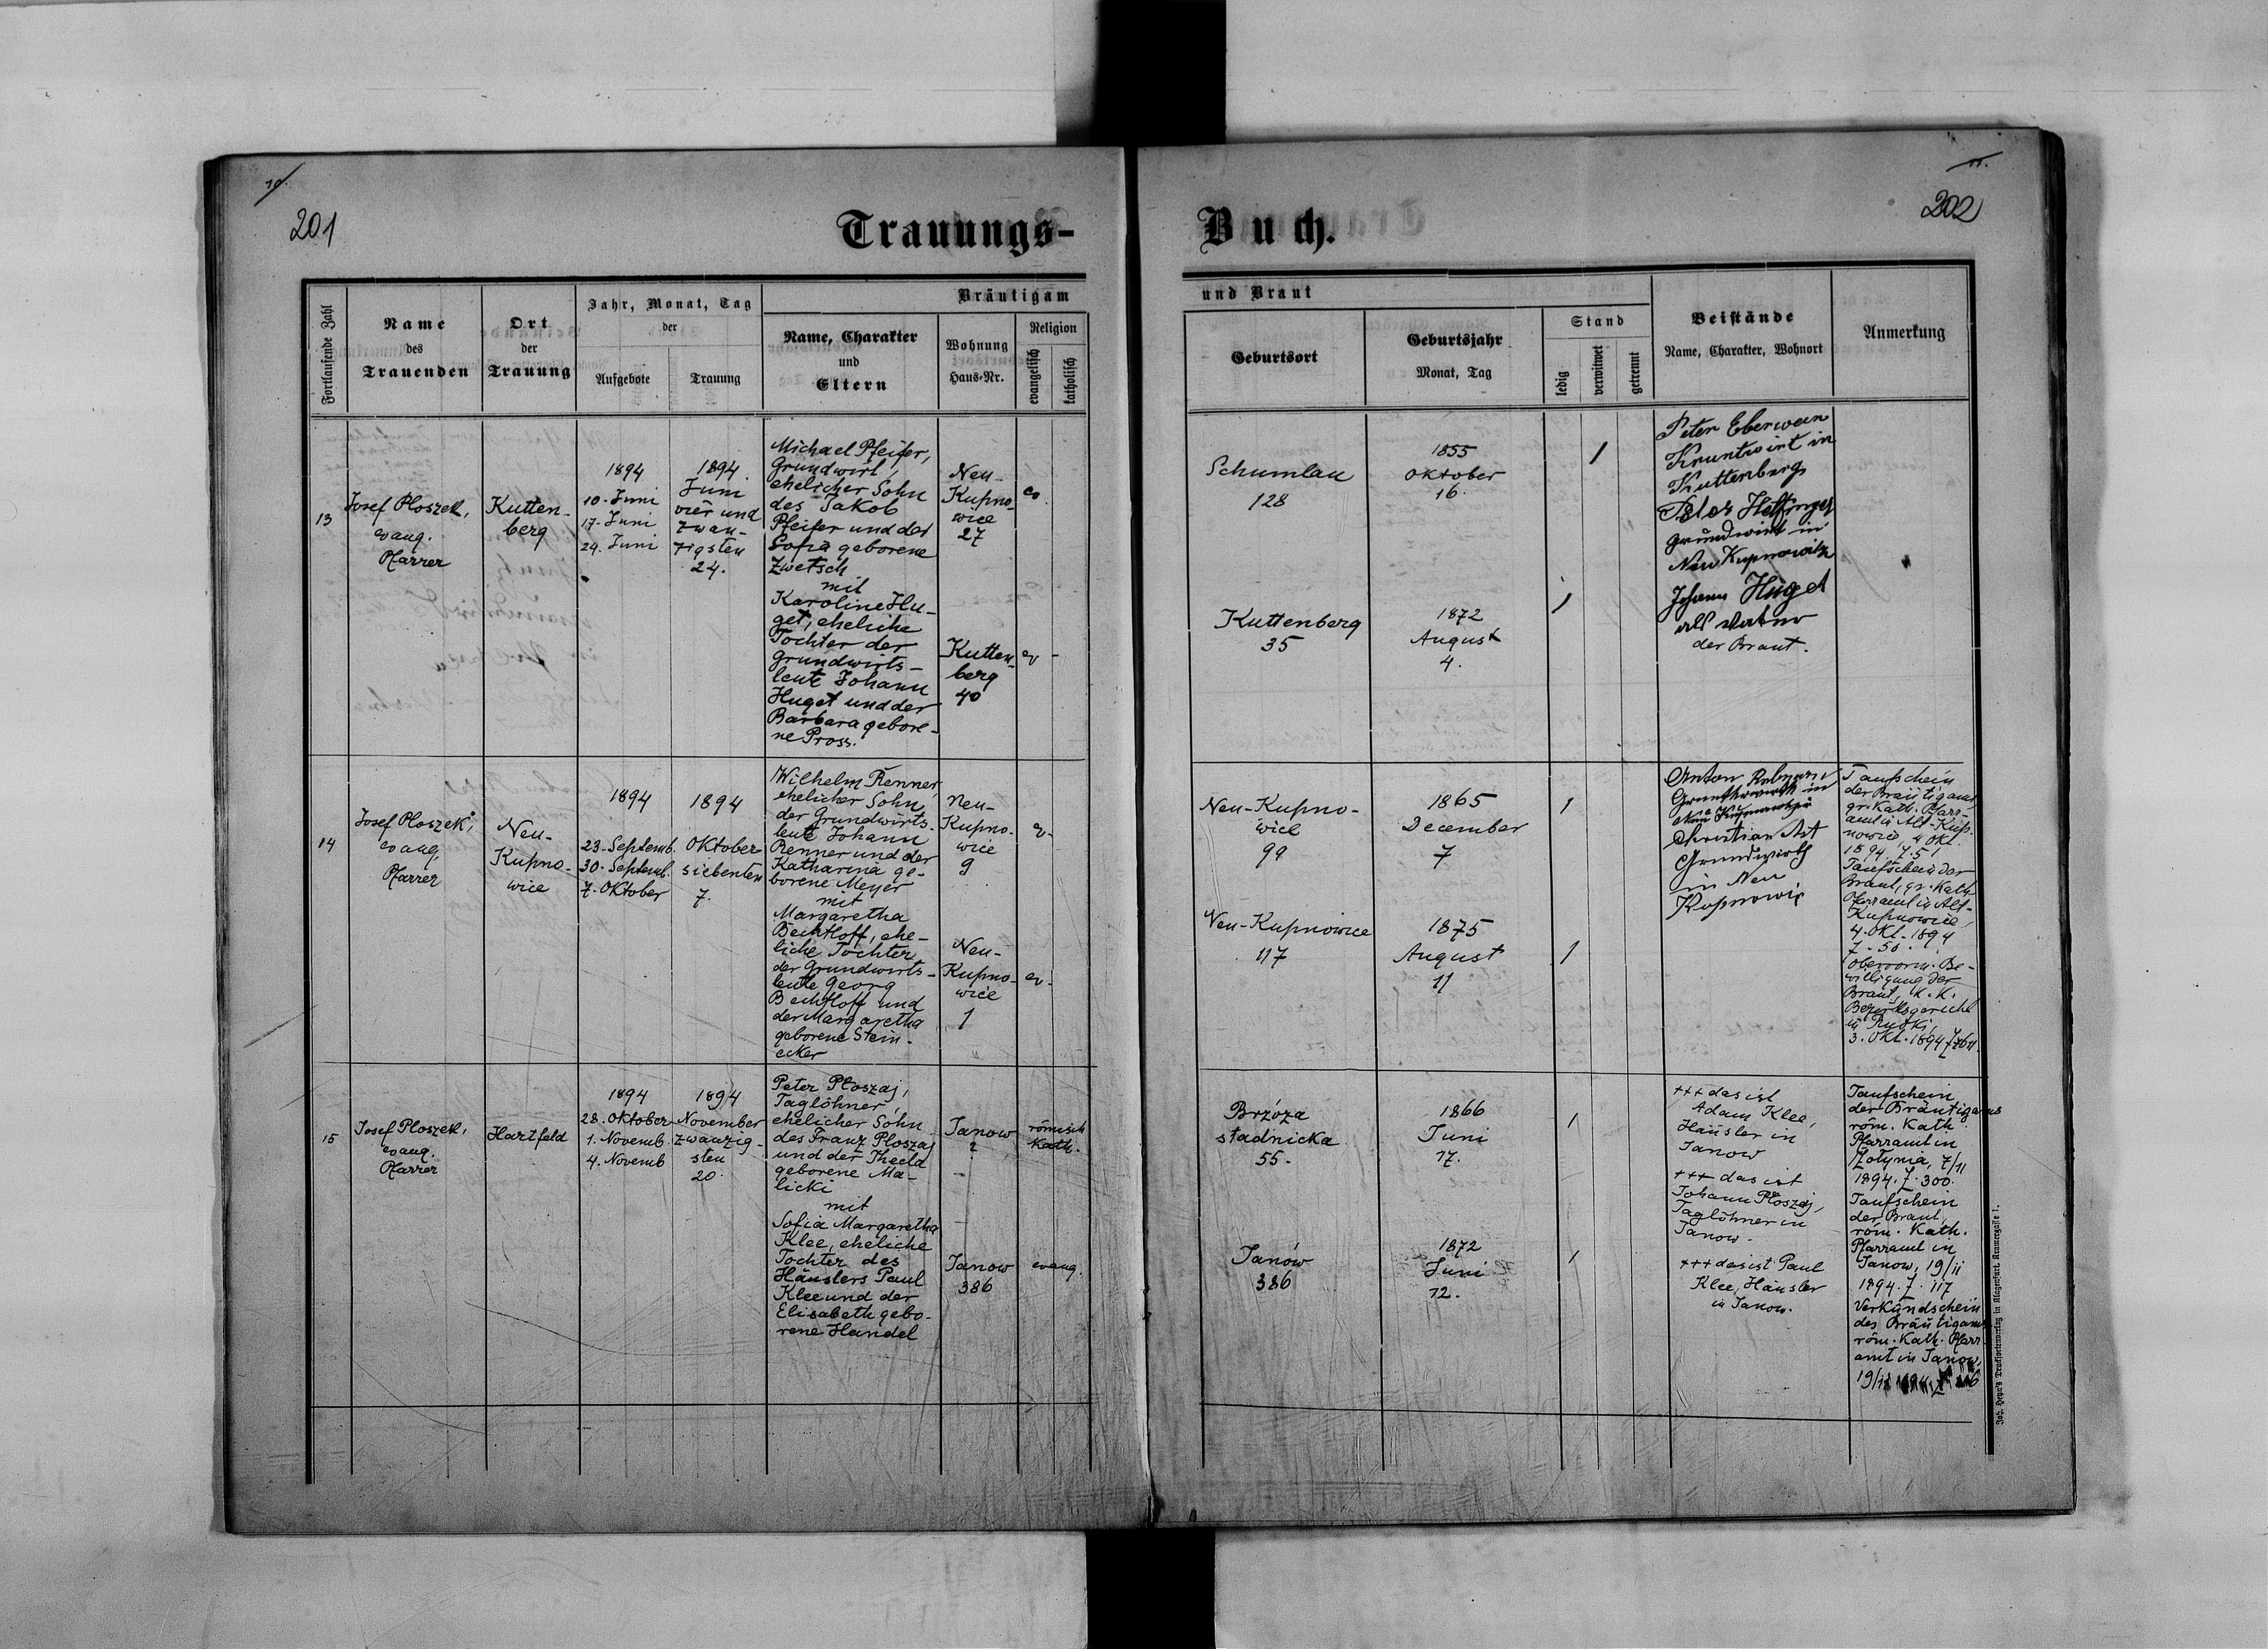 10.
201
Trauungs-
Fortlaufende Zahl
Name
des
Trauenden
Ort
der
Trauung
Jahr, Monat, Tag
der
Aufgebote
Trauung
Bräutigam
Name, Charakter
und
Eltern
Wohnung
Haus-Nr.
Religion
evangelisch
katholisch
13
Josef Ploszek,
evang.
Pfarrer
Kutten-
berg
1894
10. Juni
17. Juni
24. Juni
1894.
Juni
vier und
zwan-
zigsten
24.
Michael Pfeifer,
Grundwirt,
ehelicher Sohn
des Jakob
Pfeifer und der
Sofia geborene
Zwetsch
mit
Karoline Hu-
get, eheliche
Tochter der
Grundwirts-
leute Johann
Huget und der
Barbara gebore-
ne Pross.
Neu-
Kupno-
wice
27
ev.
Kutten-
berg
40
ev -
14
Josef Ploszek,
evang.
Pfarrer
Neu-
Kupno-
wice
1894
23. Septemb.
30. Septemb.
7. Oktober
1894
Oktober
siebenten
7.
Wilhelm Renner,
ehelicher Sohn
der Grundwirts-
leute Johann
Renner und der
Katharina ge-
borene Meyer
mit
Margaretha
Bechtloff, ehe-
liche Tochter
der Grundwirts-
leute Georg
Bechtloff und
der Margaretha
geborene Stein-
ecker
Neu-
Kupno-
wice
9
ev.
Neu-
Kupno-
wice
1
ev.
15
Josef Ploszek,
evang.
Pfarrer
Hartfeld
1894
28. Oktober
1. Novemb.
4. Novemb
1894
November
zwanzig-
sten
20.
Peter Płoszaj,
Taglöhner
ehelicher Sohn
des Franz Płoszaj
und der Thecla
geborene Ma-
licki
mit
Sofia Margaretha
Klee, eheliche
Tochter des
Häuslers Paul
Klee und der
Elisabeth gebo-
rene Handel
Janow
2
römisch
Kath.
Janow
386
evang.
11.
202
Buch.
und Braut
Geburtsort
Geburtsjahr
Monat, Tag
Stand
ledig
verwitwet
getrennt
Beistände
Name, Charakter, Wohnort
Anmerkung
Schumlau
128
1855
Oktober
16.
1
Peter Eberwein
Gruntwirt in
Kuttenberg
Grundwirt in
Neu Kupnowitz
Kuttenberg
35
1872
August
4.
1
Johann Huget
als Vater
der Braut.
Neu-Kupno-
wice
99
1865
December
7
1
Anton
in
Christian Ast
Grundwirth
in Neu
Kupnowic
Taufschein
der Bräutigams
gr. Kath. Pfarr-
amt in Alt-Kup-
nowice, 4 Okt.
1894 Z. 51
Taufschein der
Braut, gr. Kath.
Pfarramt in Alt-
Kupnowice,
4. Okt. 1894
Z. 50.
Obervorm. Be-
willigung der
Braut, K. K.
Bezirksgericht
in Rudki,
3. Okt. 1894
Neu-Kupnowice
117
1875
August
11
1
Brzóza
stadnicka
55.
1866
Juni
17.
1
+++ das ist
Adam Klee,
Häusler in
Janow
+++ das ist
Johann Płoszaj,
Taglöhner in
Janow.
Janów
386
1872
Juni
12.
1
+++ das ist Paul
Klee, Häusler
in Janow.
Taufschein
der Bräutigams
röm. Kath.
Pfarramt in
Żołynia, 7/11
1894. Z. 300.
Taufschein
der Braut,
röm. Kath.
Pfarramt in
Janow, 19/11
1894. Z. 117
Verkündschein
des Bräutigams
röm. Kath. Pfarr-
amt in Janow,
19/11
Joh. Heyn's Drucksortenverlag in Klagenfurt, Kramergasse 1.